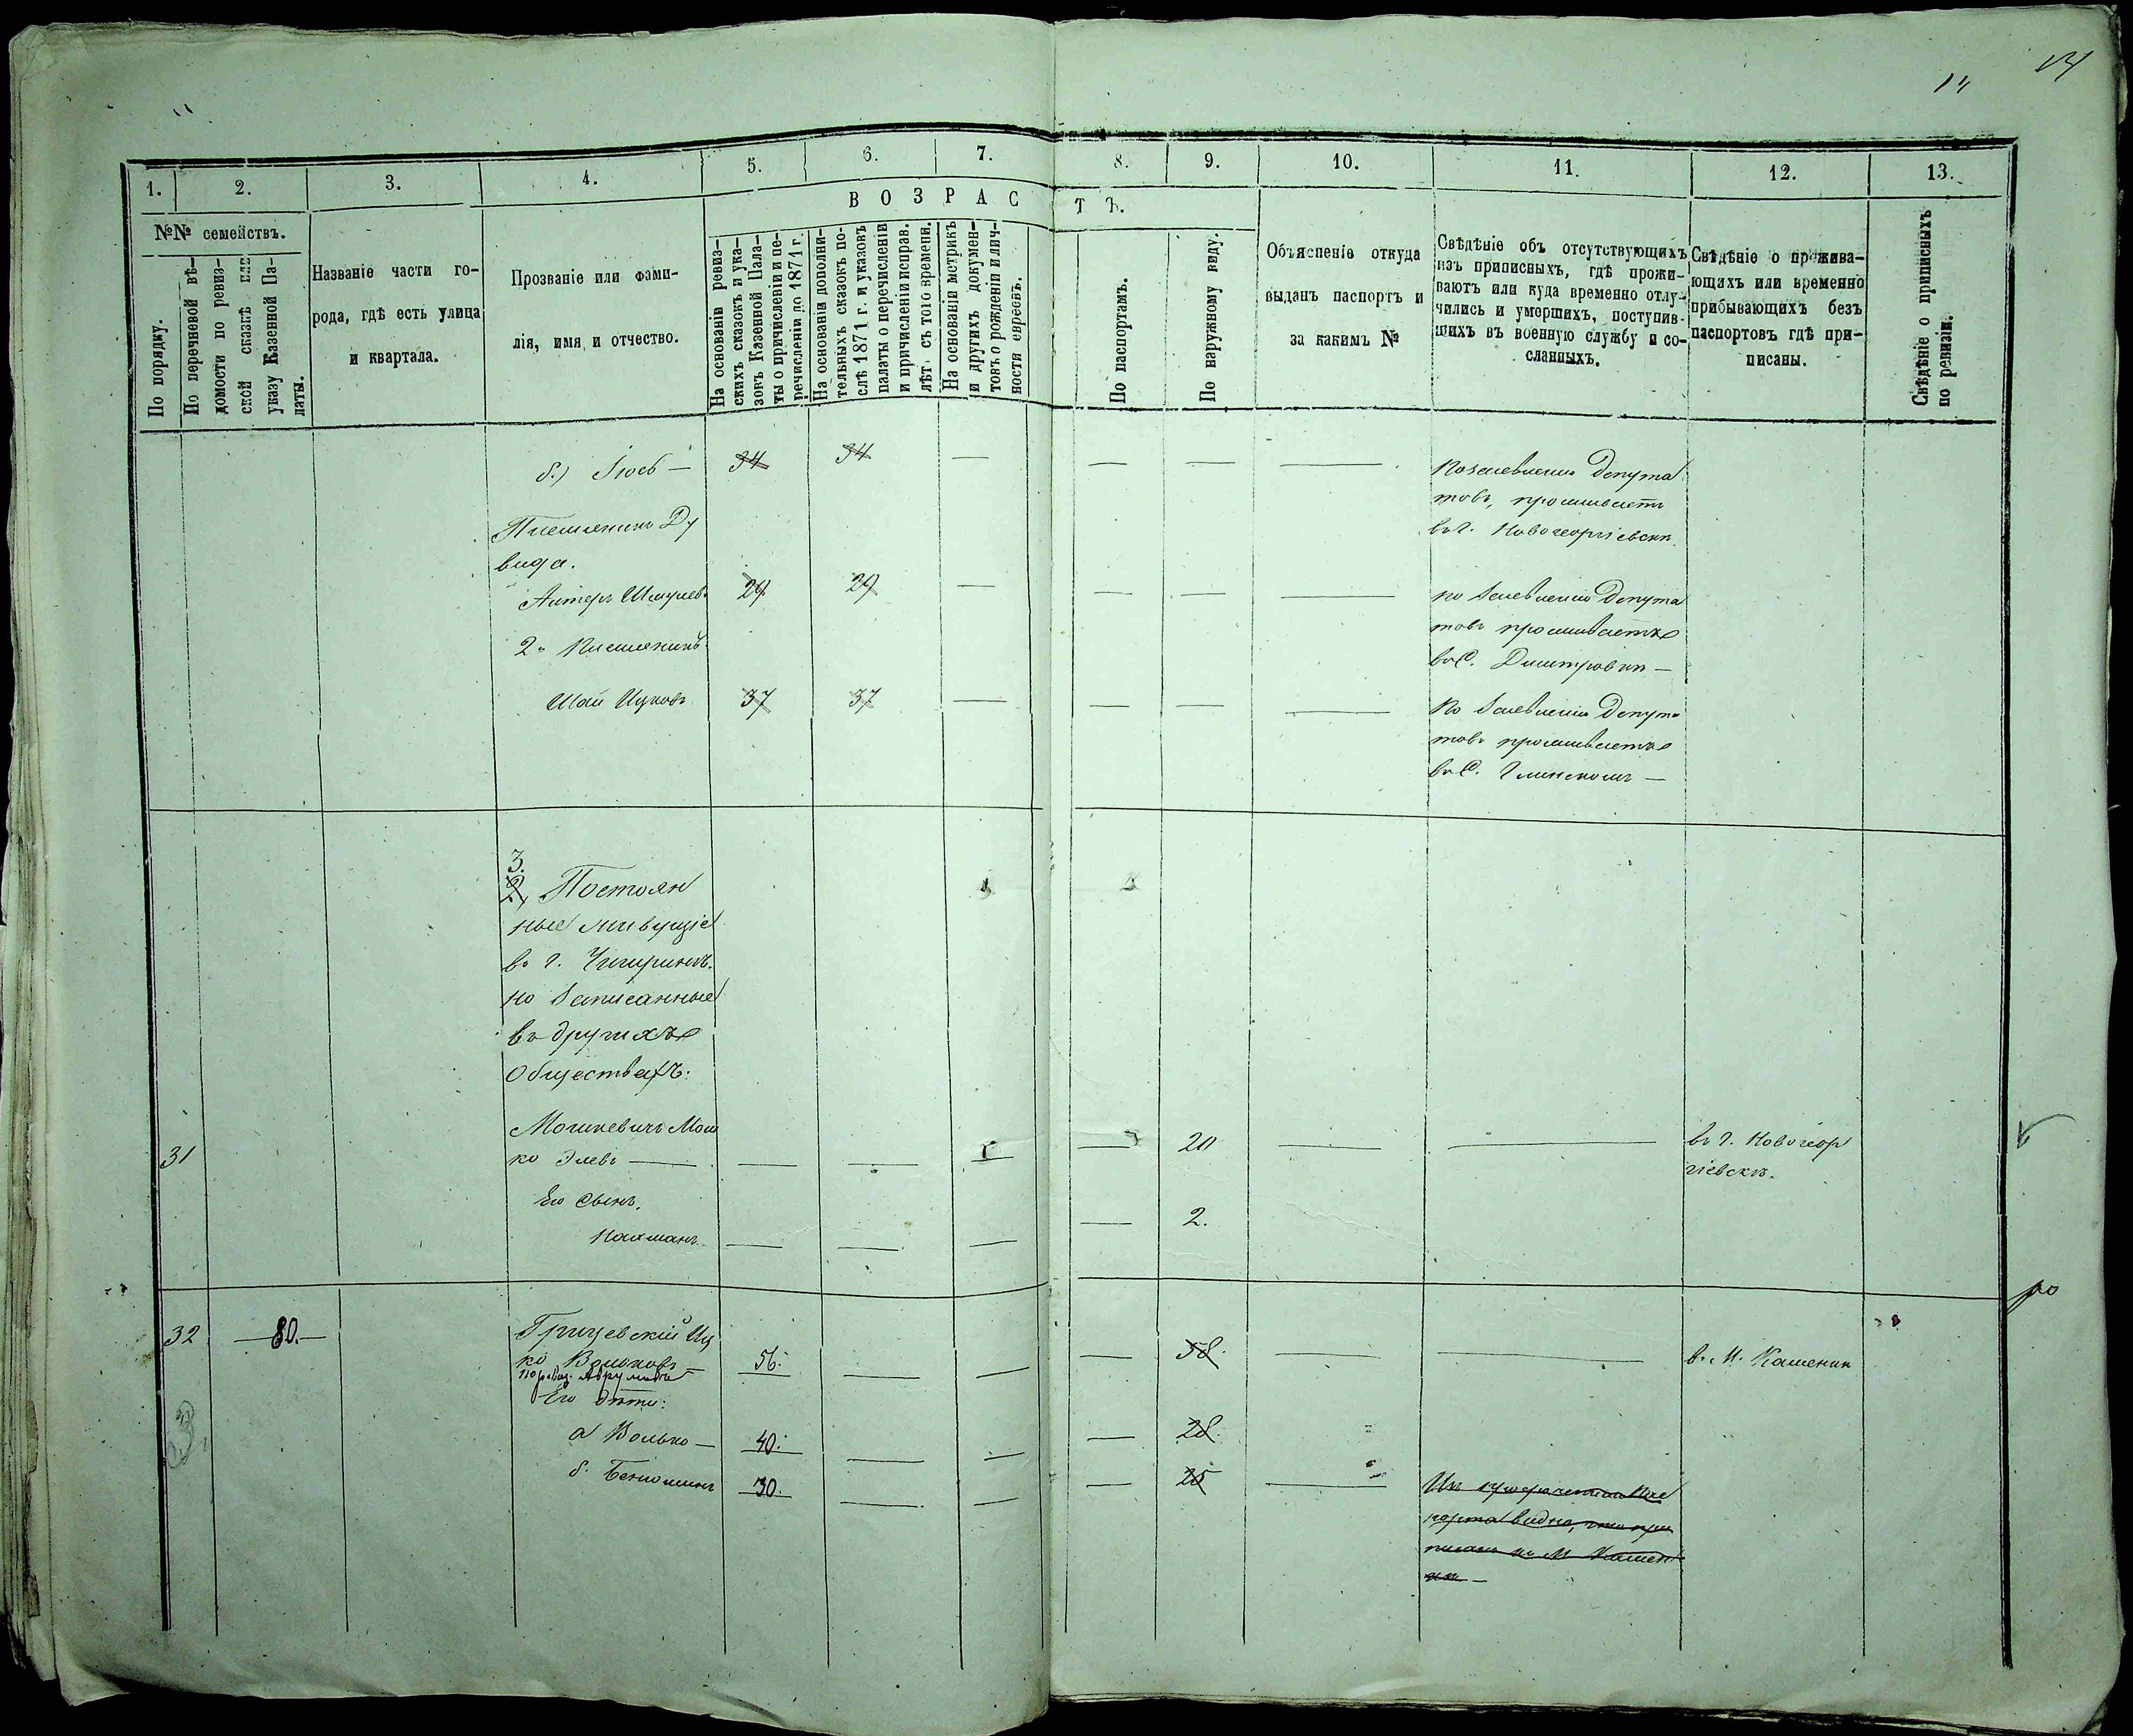 14
1. 2. 3. 4. 5. 6. 7. 8. 9. 10. 11. 12. 13.
В О З Р А С Т Ъ.
№№ семействъ.
По порядку.
По перечневой вѣ-
домости по ревиз-
ской сказкѣ или
указу Казенной Па-
латы.
Названіе части го-
рода, гдѣ есть улица
и квартала.
Прозваніе или фами-
лія, имя и отчество.
На основаніи ревиз-
скихъ сказокъ и ука-
зовъ Казенной Пала-
ты о причисленіи и пе-
речисленіи до 1871 г.
На основаніи дополни-
тельныхъ сказокъ по-
слѣ 1871 г. и указовъ
палаты о перечисленіи
и причисленіи исправ.
лѣт. съ того времени.
На основаніи метрикъ
и другихъ докумен-
товъ о рожденіи и лич-
ности евреевъ.
По паспортамъ.
По наружному виду.
Объясненіе откуда
выданъ паспортъ и
за какимъ №
Свѣдѣніе объ отсутствующихъ
изъ приписныхъ, гдѣ прожи-
ваютъ или куда временно отлу-
чились и умершихъ, поступив-
шихъ въ военную службу и со-
сланныхъ.
Свѣдѣніе о прожива-
ющихъ или временно
прибывающихъ безъ
паспортовъ гдѣ при-
писаны.
Свѣдѣніе о приписныхъ
по ревизіи.
б.) Іось — 34 34 — — — — По заевленію Депута
товъ, проживаетъ
въ г. Новогеоргіевскѣ.
Племянникъ Ду
вида.
Алтеръ Шмулевъ 29 29 — — — — по Заевленію Депута
товъ проживаетъ
въ С. Дмитровкѣ —
2. Племянникъ
Шая Ицковъ 37 37 — — — — По Заевленію Депута
товъ проживаетъ
въ С. Глинскомъ —
3.
2, Постоян
ные живущіе
въ г. Чигиринѣ.
но Записанные
въ другихъ
Обществахъ:
31 Мошкевичъ Мош
ко Элевъ — — — — — 20 — — въ г. Новогеор
гіевскѣ.
Его Сынъ.
Нахманъ — — — — 2.
32 80. Грицевскій Иц
ко Вольковъ — 56. — — — 58. — — въ М. Каменкѣ
по ревиз. Аврумовъ
Его дѣти:
а Волько — 40. — — — 28.
б. Беньоминъ 30. — — — 25 —
порта видно, что при
писанъ къ М. Камен
кѣ —